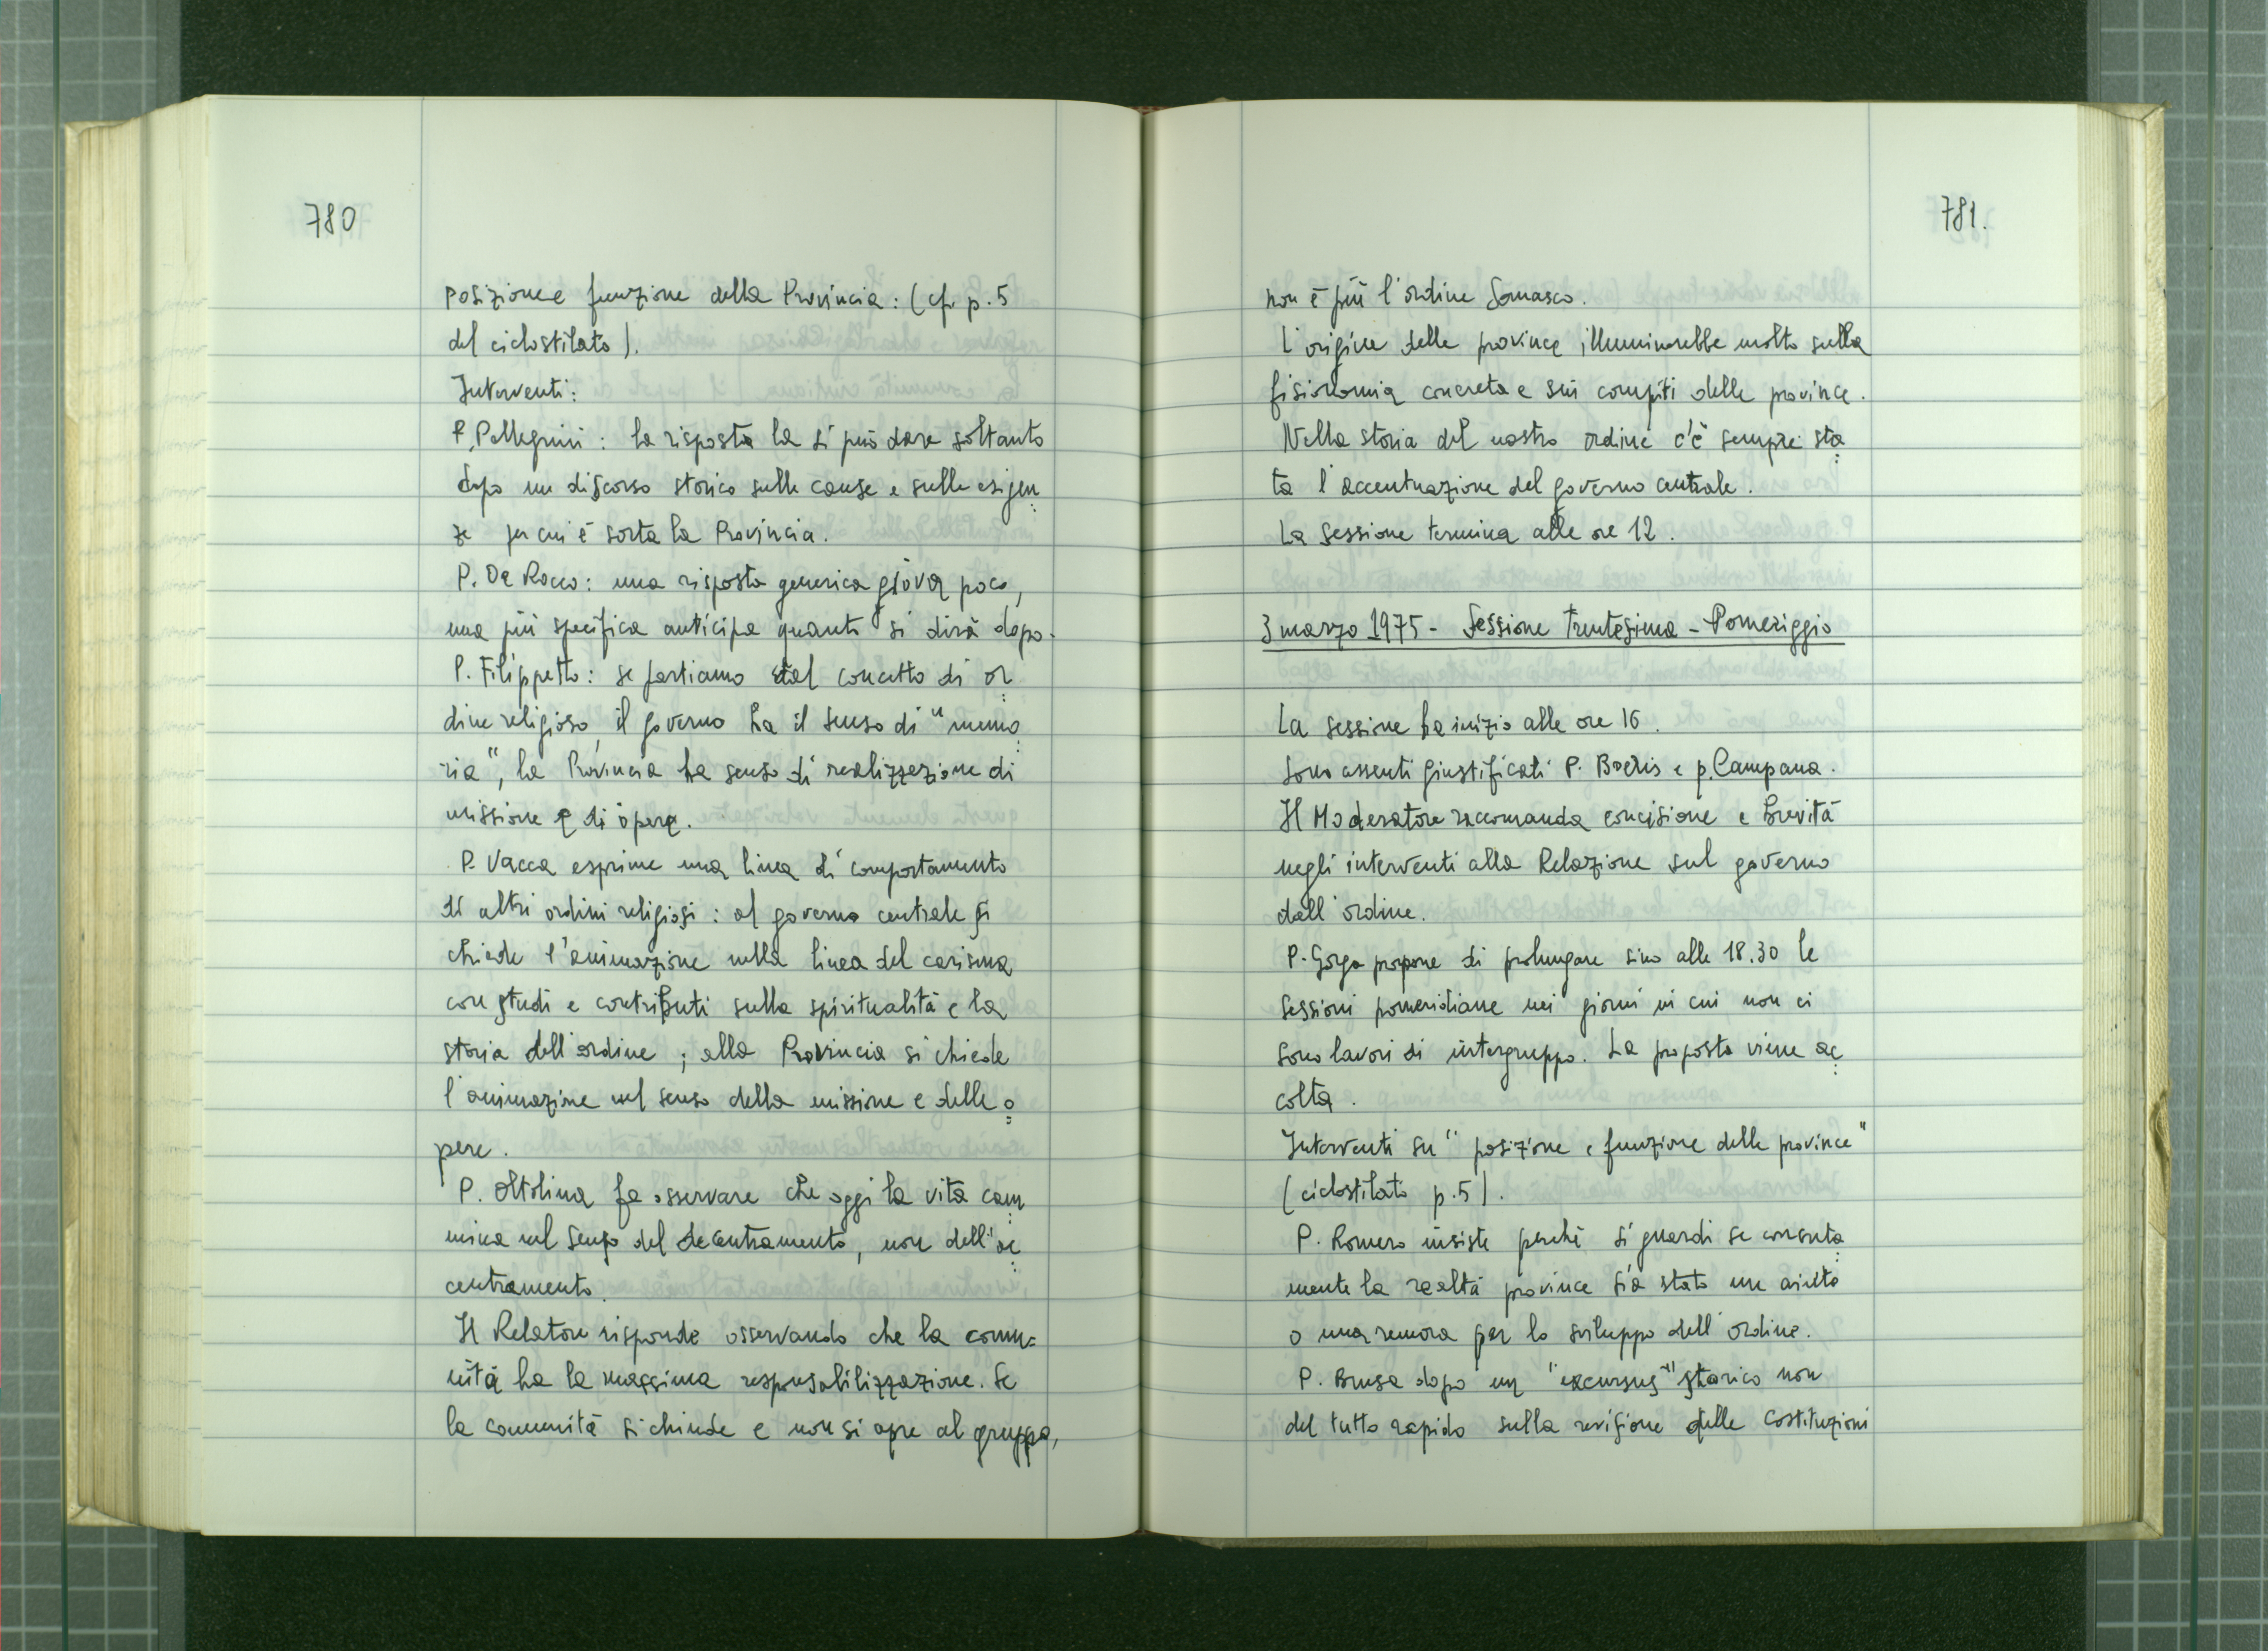 780
posizione e funzione della Provincia: (cfr p. 5
del ciclostilato).
Interventi:
P. Pellegrini: la risposta la si può dare soltanto
dopo un discorso storico sulle cause e sulle esigen
ze per cui è sorta la Provincia.
P. De Rocco: una risposta generica giova poco,
una più specifica anticipa quanto si dirà dopo.
P. Filippetto: se partiamo dal concetto di or
dine religioso, il governo ha il senso di "memo
ria", la Provincia ha senso di realizzazione di
missione e di opere.
P. Vacca esprime una linea di comportamento
di altri ordini religiosi: al governo centrale si
chiede l'animazione nella linea del carisma
con studi e contributi sulla spiritualità e la
storia dell'ordine; alla Provincia si chiede
l'animazione nel senso della missione e delle o
pere.
P. Oltolina fa osservare che oggi la vita cam
mina nel senso del decentramento, non dell'ac
centramento.
Il Relatore risponde osservando che la comu=
nità ha la massima responsabilizzazione. Se
la comunità si chiude e non si apre al gruppo,
781.
non è più l'ordine Somasco.
L'origine delle province illuminerebbe molto sulla
fisionomia concreta e sui compiti delle province.
Nella storia del nostro ordine c'è sempre sta
ta l'accentuazione del governo centrale.
La sessione termina alle ore 12.
3 marzo 1975 - Sessione trentesima - Pomeriggio
La sessione ha inizio alle ore 16.
Sono assenti giustificati P. Boeris e p. Campana.
Il Moderatore raccomanda concisione e brevità
negli interventi alla Relazione sul governo
dell'ordine.
P. Gorga propone di prolungare sino alle 18.30 le
sessioni pomeridiane nei giorni in cui non ci
sono lavori di intergruppo. La proposta viene ac
colta.
Interventi su "posizione e funzione delle province"
(ciclostilato p. 5).
P. Romero insiste perché si guardi se concreta
mente la realtà province sia stato un aiuto
o una remora per lo sviluppo dell'ordine.
P. Brusa dopo un "excursus" storico non
del tutto rapido sulla revisione delle Costituzioni